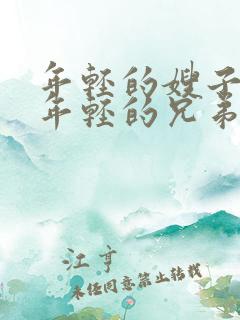 年轻的嫂子
年轻的兄弟
江亨
未经同意禁止转载